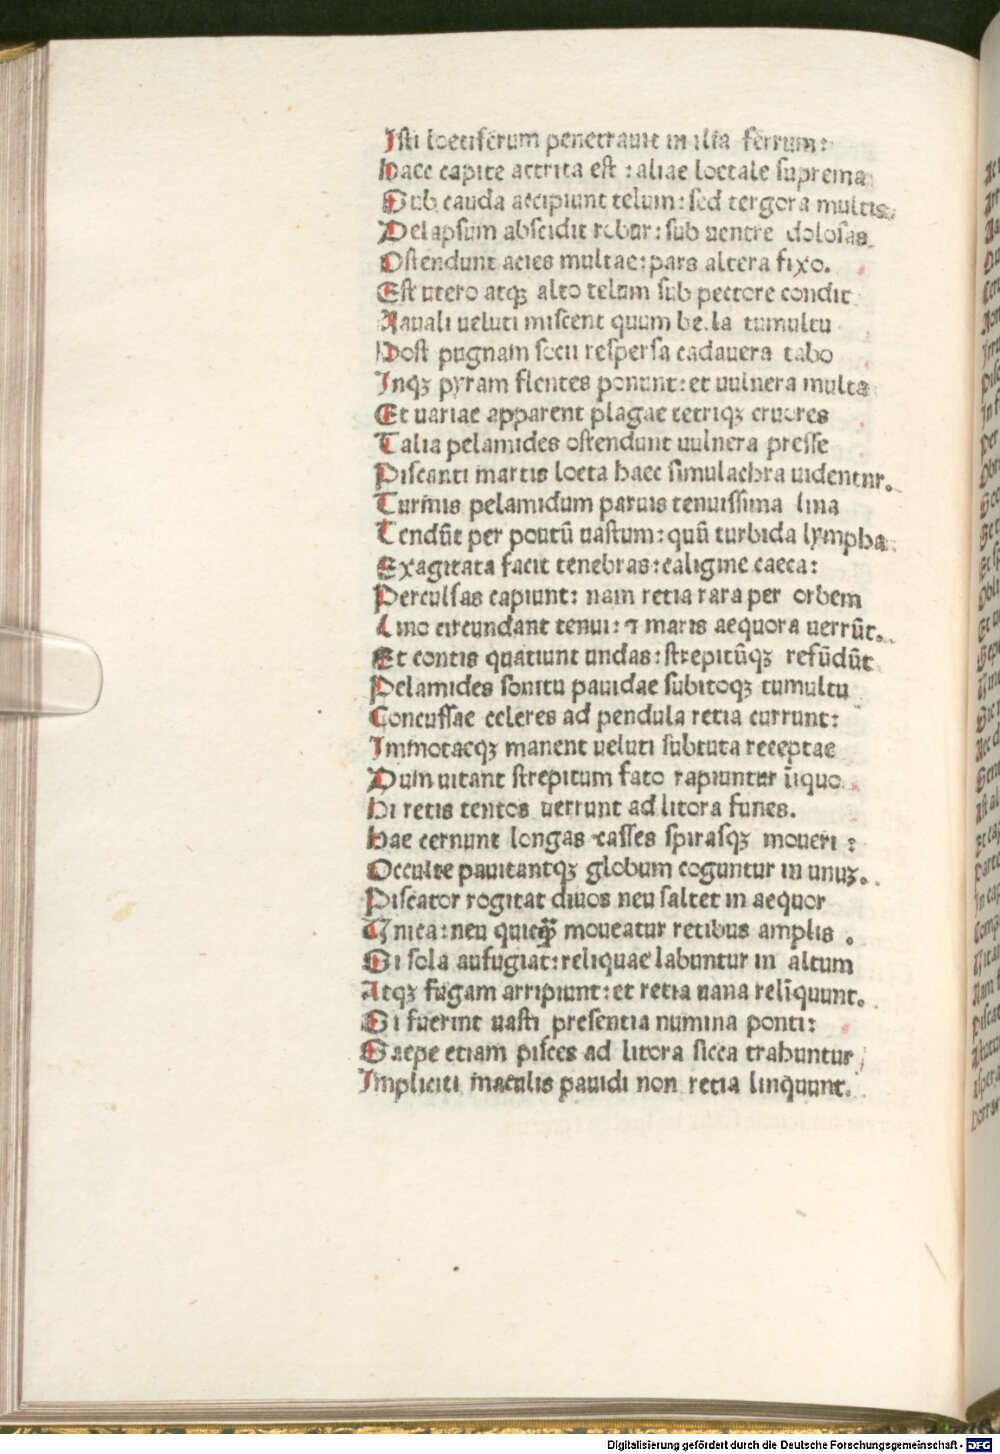 Isti loetiferum penetrauit in ilia ferrum:
Haec capite attrita est: aliae loetale suprema
Sub cauda accipiunt telum: sed tergora multis
Delapsum abscidit robur: sub uentre dolosas
Ostendunt acies multae: pars altera fixo.
Est utero atqꝫ alto telum sub pectore condit
Nauali ueluti miscent quum bella tumultu
Post pugnam socii respersa cadauera tabo
Inqꝫ pyram flentes ponunt: et uulnera multa
Et uariae apparent plagae tetriqꝫ cruores
Talia pelamides ostendunt uulnera presse
Piscanti martis loeta haec simulachra uidentur.
Turmis pelamidum paruis tenuissima lina
Tendūt per pontū uastum: quū turbida lympha
Exagitata facit tenebras: caligine caeca:
Perculsas capiunt: nam retia rara per orbem
Lino circundant tenui: ⁊ maris aequora uerrūt.
Et contis quatiunt undas: strepitūqꝫ refūdūt
Pelamides sonitu pauidae subitoqꝫ tumultu
Concussae celeres ad pendula retia currunt:
Immotaeqꝫ manent ueluti subtuta receptae
Dum uitant strepitum fato rapiuntur īiquo
Hi retis tentos uerrunt ad litora funes.
Hae cernunt longas casses spirasqꝫ moueri:
Occulte pauitantqꝫ globum coguntur in unuꝫ.
Piscator rogitat diuos neu saltet in aequor
Unica: neu quicqꝫ moueatur retibus amplis.
Si sola aufugiat: reliquae labuntur in altum
Atqꝫ fugam arripiunt: et retia uana relīquunt.
Si fuerint uasti presentia numina ponti:
Saepe etiam pisces ad litora sicca trahuntur
Impliciti maculis pauidi non retia linquunt.
Digitalisierung gefördert durch die Deutsche Forschungsgemeinschaft - DFG